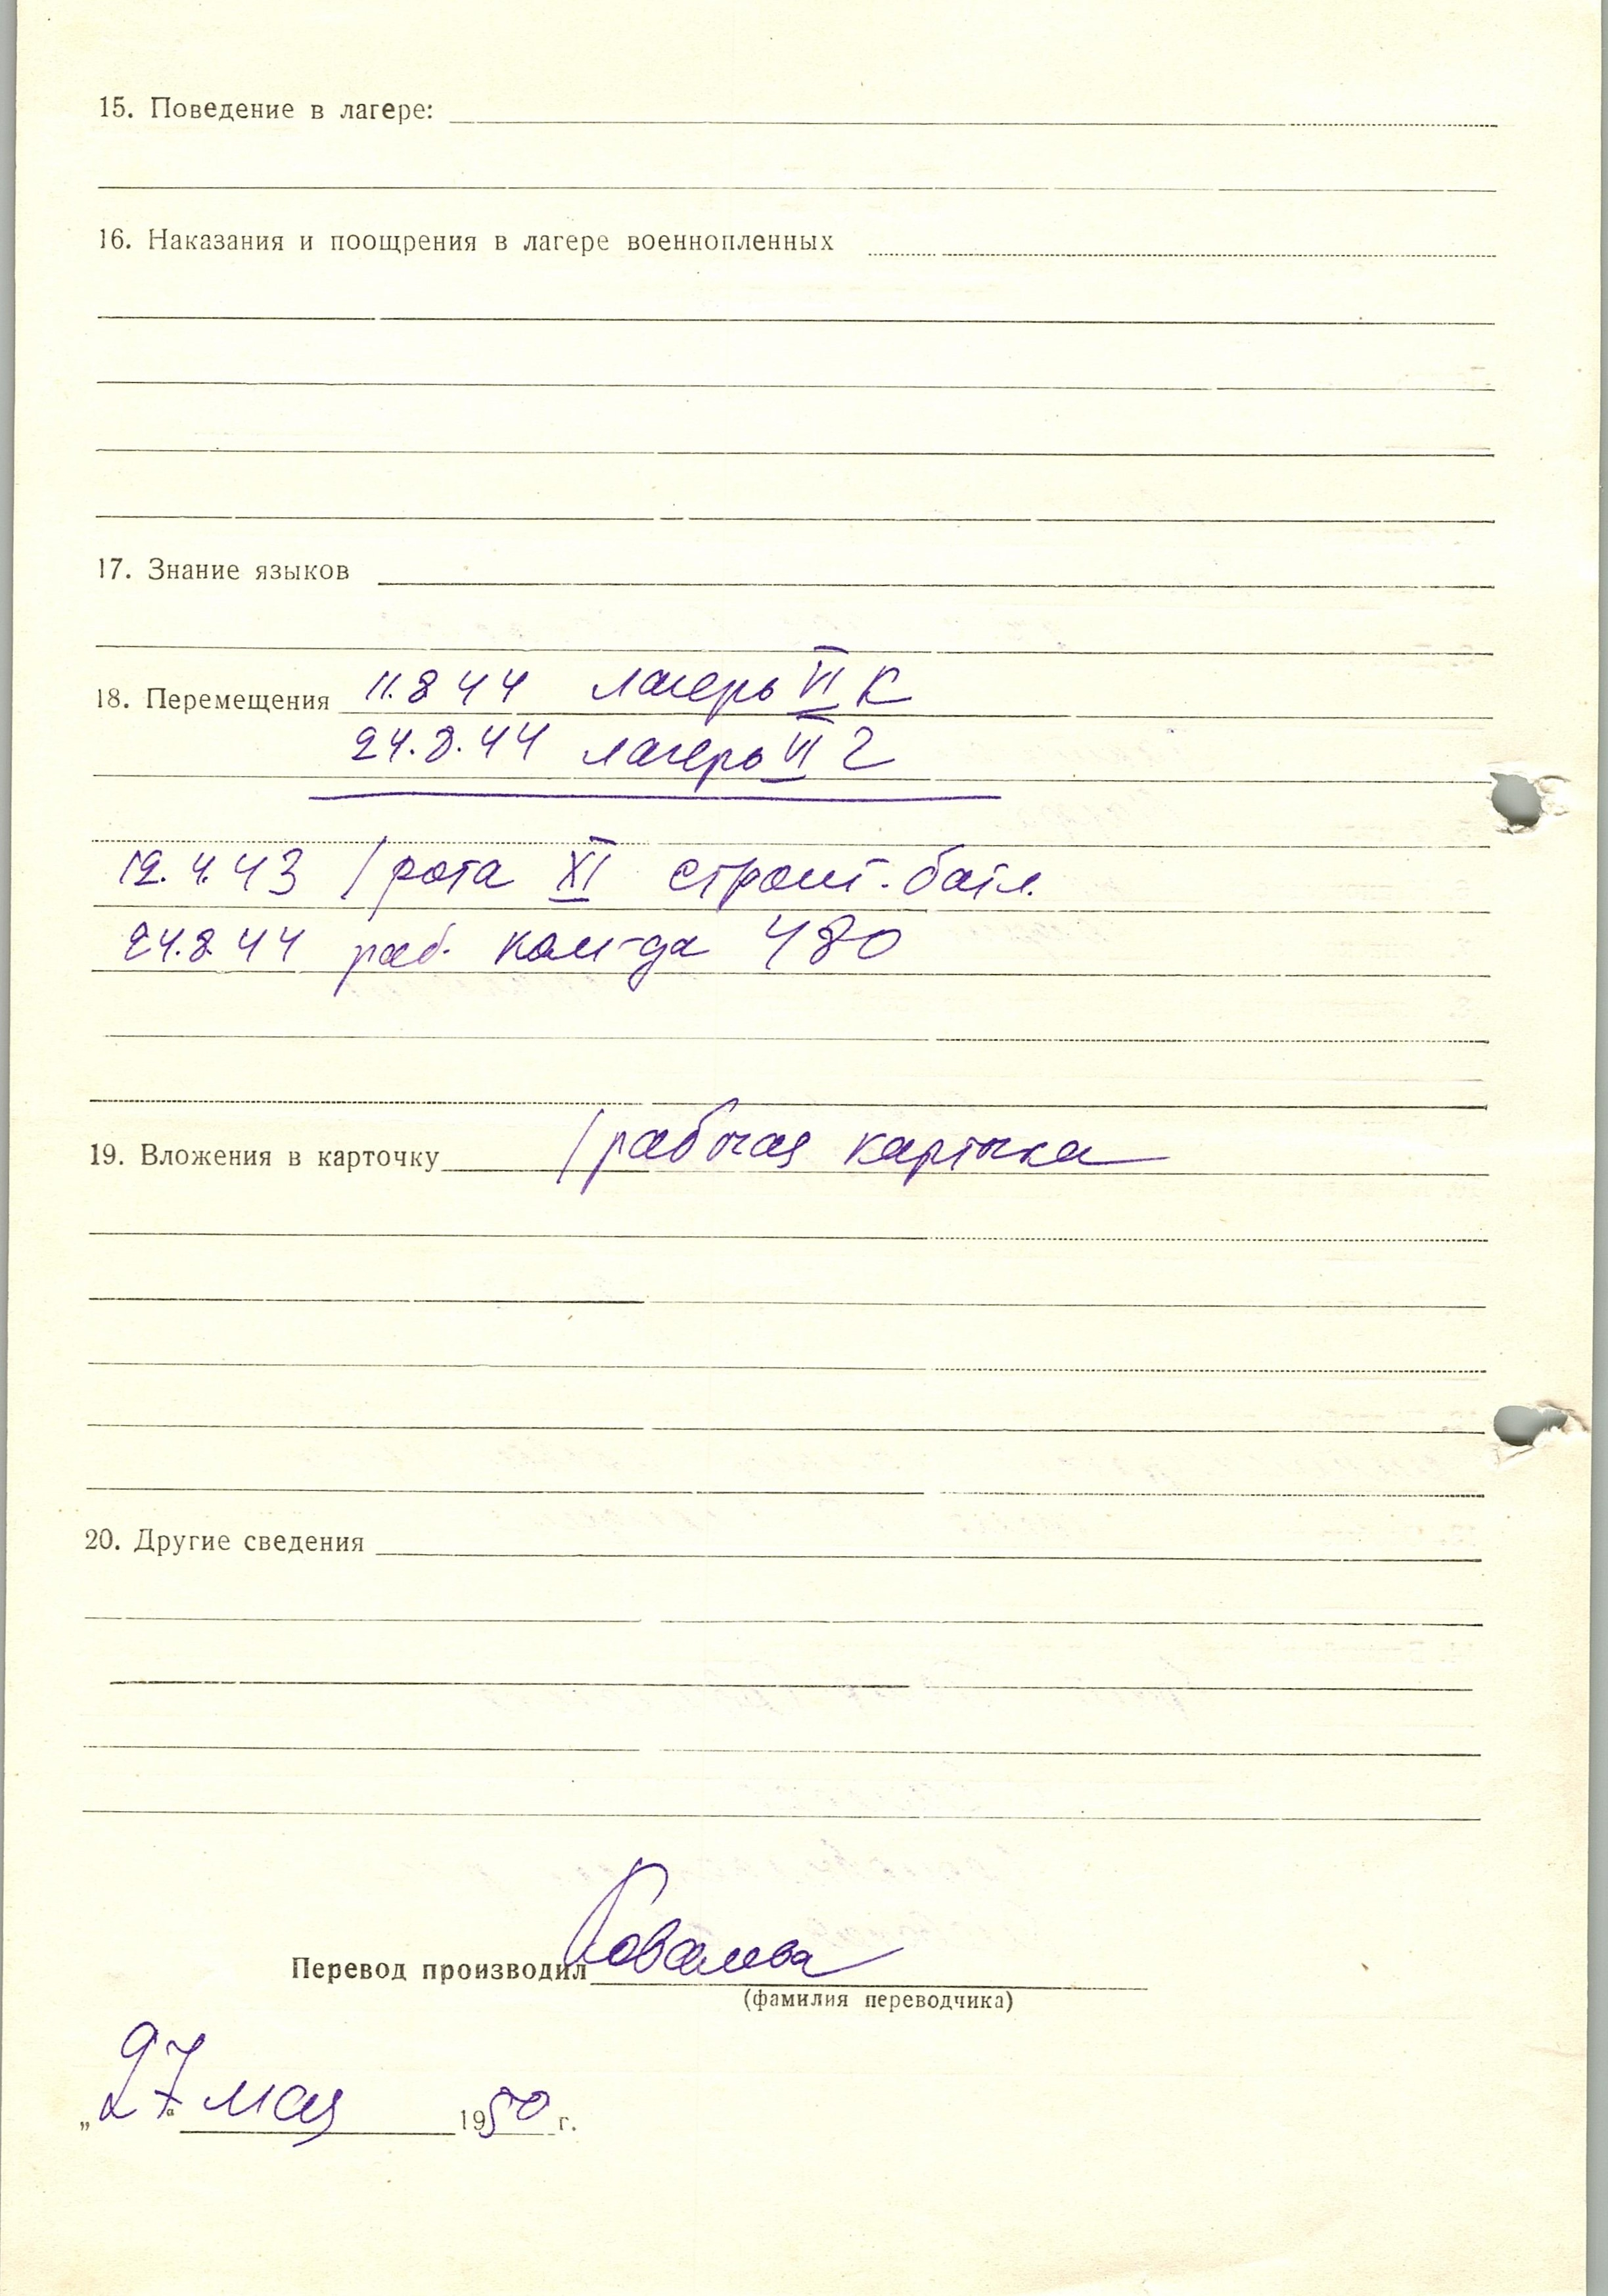 15. Поведение в лагере:
16. Наказания и поощрения в лагере военнопленных
17. Знание языков
18. Перемещения 11.8 44 лагерь VI К
24.8.44 лагерь VI Г
12.4.43 1 рота XI строит. батл.
24.8.44 раб. ком-да 480
19. Вложения в карточку 1 рабочая карточка
20. Другие сведения
Перевод производил Ковалева
(фамилия переводчика)
„27“ мая 1950 г.